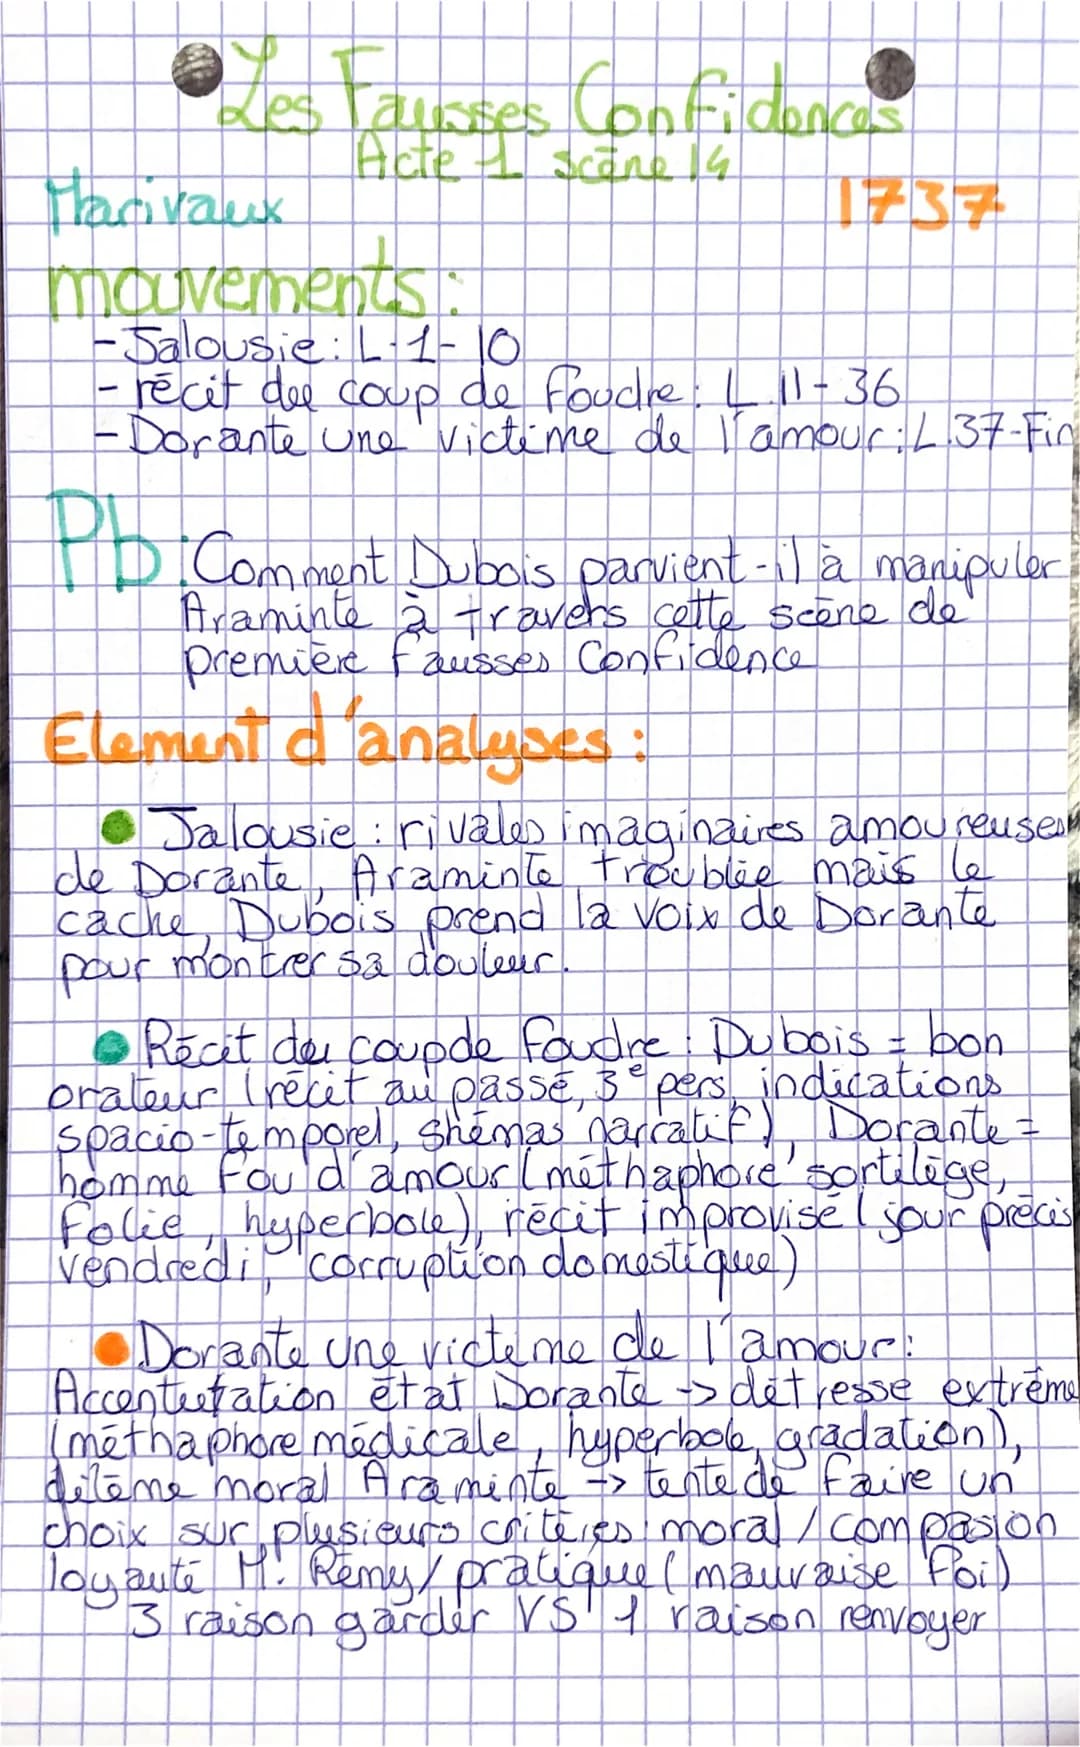 Les Fausses Confidences
Acte 1 scène 14
Marivaux 1737
mouvements :
- Jalousie : L.1-10
- récit du coup de foudre : L.11-36
- Dorante une victime de l'amour : L.37-Fin
Pb : Comment Dubois parvient-il à manipuler
Araminte à travers cette scène de
première fausses Confidence
Element d'analyses :
Jalousie : rivales imaginaires amoureuses
de Dorante, Araminte troublée mais le
cache, Dubois prend la voix de Dorante
pour montrer sa douleur.
Récit du coup de foudre : Dubois = bon
orateur (récit au passé, 3e pers, indications
spacio-temporel, shémas narratif), Dorante =
homme fou d'amour (méthaphore sortilège,
folie, hyperbole), récit improvisé (jour précis
vendredi, corruption domestique)
Dorante une victime de l'amour :
Accentutation état Dorante -> détresse extrême
(méthaphore médicale, hyperbole, gradation),
dilème moral Araminte -> tente de faire un
choix sur plusieurs critères : moral / compasion
loyauté M. Rémy / pratique (mauvaise foi)
3 raison garder VS 1 raison renvoyer